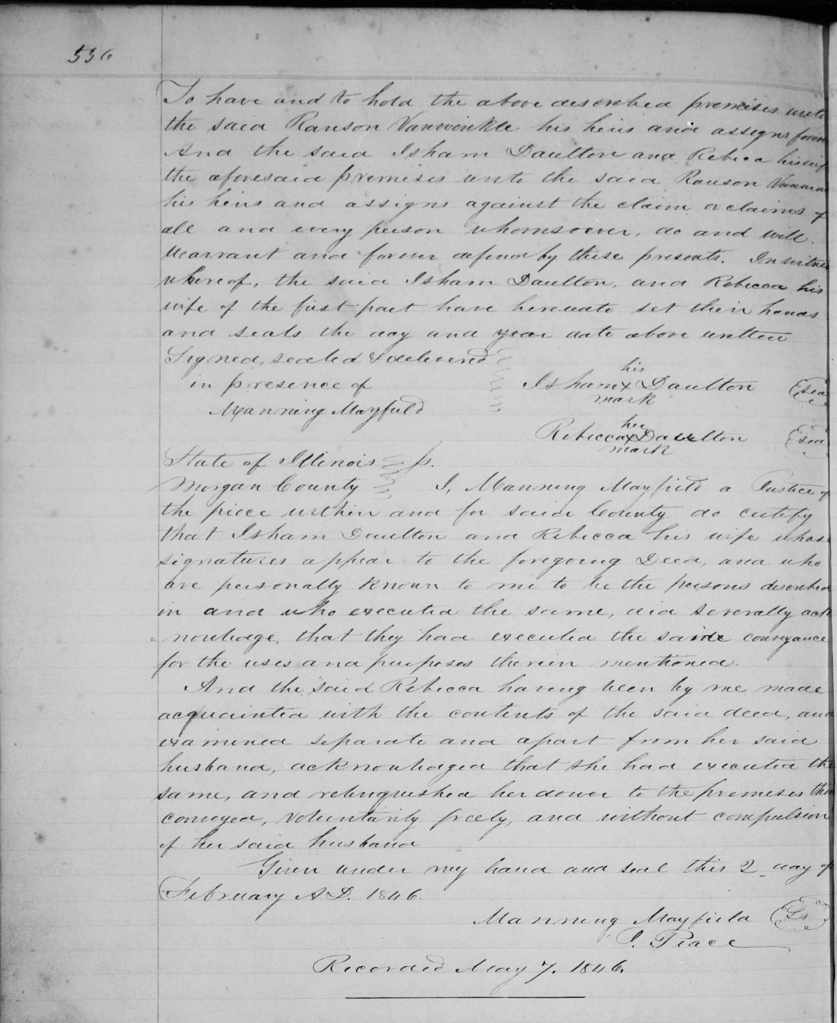 536
To have and to hold the above described premises unto
the said Ranson Vanwinkle his heirs and assigns forever
And the said Isham Daulton and Rebeca his wife
the aforesaid premises unto the said Ranson Vanwin
his heirs and assigns against the claim or claims of
all and every person whomsoever, do and will
Warrant and forever defend by these presents. In witness
whereof, the said Isham Daulton, and Rebecca his
wife of the first part have hereunto set their hands
and seals the day and year date above written
Signed, sealed & delivered
in presence of
Manning Mayfield
his
Isham x Daulton (Sea
mark
her
Rebecca x Daulton (Sea
mark
State of Illinois ss.
Morgan County I, Manning Mayfield a Justice of
the piece within and for said County do certify
that Isham Daulton and Rebecca his wife whose
signatures appear to the foregoing Deed, and who
are personally known to me to be the persons described
in and who executed the same, did severally ack
nowledge, that they had executed the said conveyance
for the uses and purposes therein mentioned.
And the said Rebecca having been by me made
acquainted with the contents of the said deed, and
examined separate and apart from her said
husband, acknowledged that she had executed the
same, and relinquished her dower to the premises then
conveyed, voluntarily freely, and without compulsion
of her said husband
Given under my hand and seal this 2 day of
February A.D. 1846.
Manning Mayfield (Ls)
J. Peace
Recorded May 7. 1846